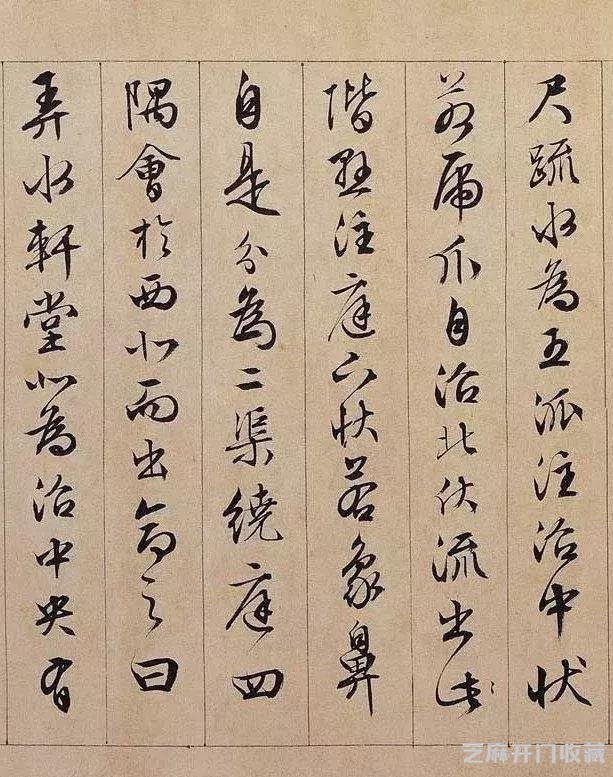 尺疏水為五派注沼中狀
若虎爪自沼北伏流出北
階懸注庭下狀若象鼻
自是分為二渠繞庭四
隅會於西北而出命之曰
弄水軒堂北為沼中央有
芝麻开门收藏